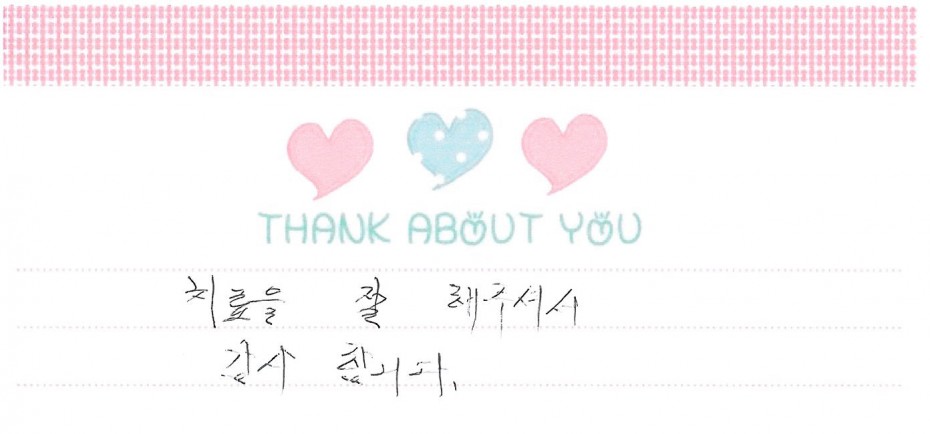 THANK ABOUT YOU
치료을 잘 해주셔서
감사 합니다.